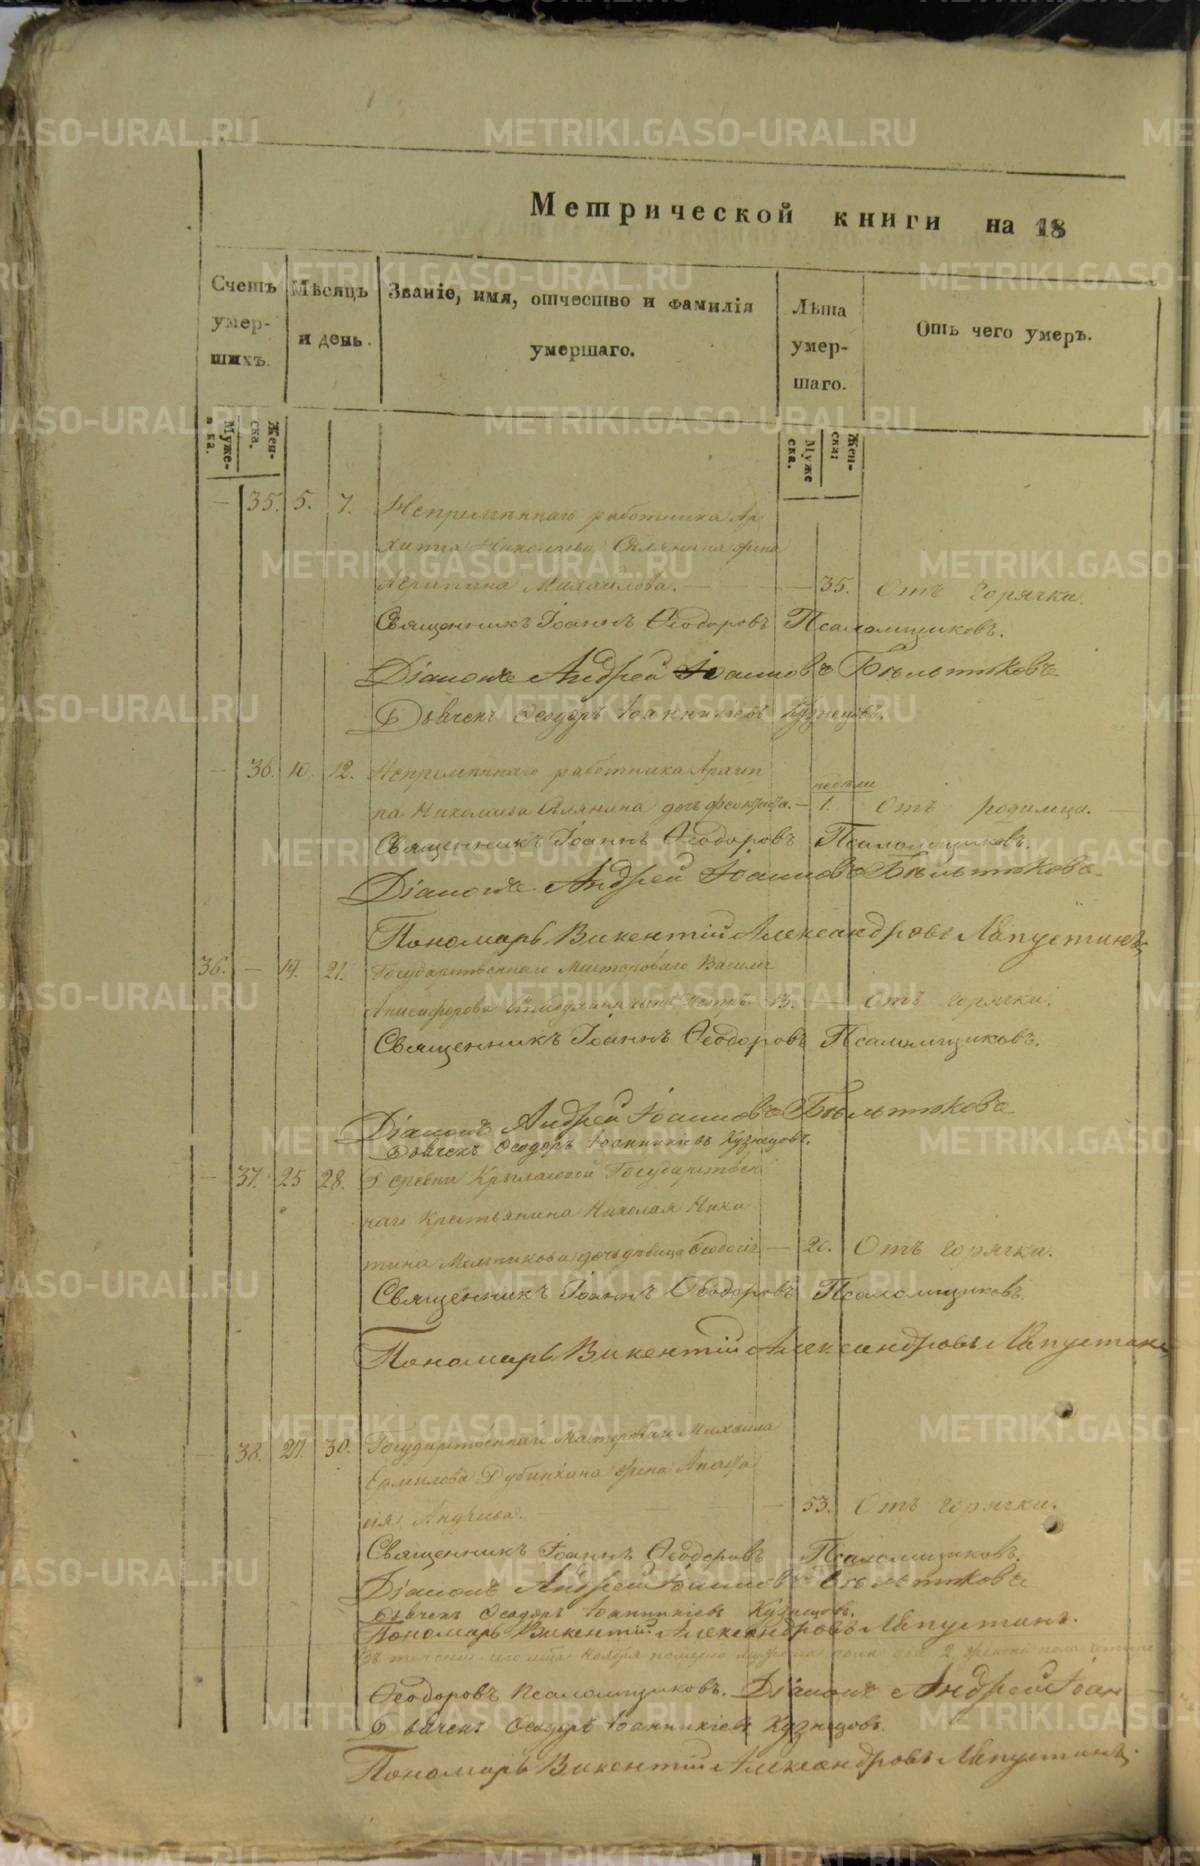 Метрической книги на 18
Счетъ умер-шихъ.
Мѣсяцъ и день.
Званіе, имя, отчество и фамилія умершаго.
Лѣта умер-шаго.
Отъ чего умеръ.
Муже-ска. Жен-ска.
Муже-ска. Жен-ска:
— 35. 5. 7. Непремѣннаго работника Ар
хипа Николаева Силянина жена
Агрипина Михаилова. — — 35. Отъ горячки.
Священникъ Іоаннъ Ѳеодоровъ Псаломщиковъ.
Діаконъ Андрей Іоанновъ Бѣльтюковъ
Дьячекъ Ѳеодоръ Іоанникіевъ Кузнецовъ.
— 36. 10. 12. Непремѣннаго работника Архип
недѣли
па Николаева Силянина дочь — 1. Отъ родимца.
Священникъ Іоаннъ Ѳеодоровъ Псаломщиковъ.
Діаконъ Андрей Іоанновъ Бѣльтюковъ
Пономарь Викентій Александровъ Лапустинъ
36. — 19. 21. Государственнаго Мастероваго Василія
Анисифорова сынъ Петръ. 13. — Отъ горячки.
Священникъ Іоаннъ Ѳеодоровъ Псаломщиковъ.
Діаконъ Андрей Іоанновъ Бѣльтюковъ
Дьячекъ Ѳеодоръ Іоанникіевъ Кузнецовъ.
— 37. 25 28. Деревни Крыласовой Государствен
наго Крестьянина Николая Ники
тина Мельникова дочь дѣвица Ѳеодосія — 20. Отъ горячки.
Священникъ Іоаннъ Ѳеодоровъ Псаломщиковъ.
Пономарь Викентій Александровъ Лапустинъ
— 38. 27. 30. Государственнаго Мастероваго Михаила
Ермилова Дубинкина жена Анаста
сія — 53. Отъ горячки.
Священникъ Іоаннъ Ѳеодоровъ Псаломщиковъ.
Діаконъ Андрей Іоанновъ Бѣльтюковъ
Дьячекъ Ѳеодоръ Іоанникіевъ Кузнецовъ.
Пономарь Викентій Александровъ Лапустинъ.
Ноября 2, женска пола
Ѳеодоровъ Псаломщиковъ. Діаконъ Андрей Іоан
Дьячекъ Ѳеодоръ Іоанникіевъ Кузнецовъ
Пономарь Викентій Александровъ Лапустинъ.
METRIKI.GASO-URAL.RU